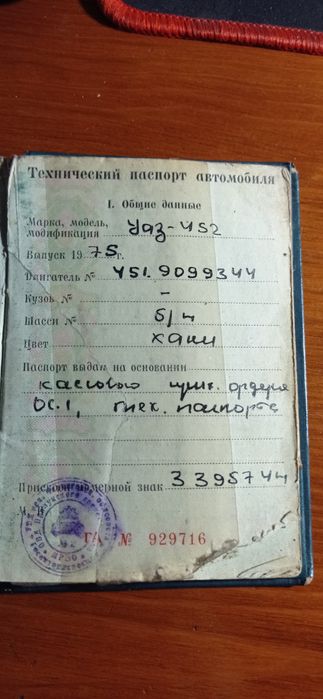 Технический паспорт автомобиля
I. Общие данные
Марка, модель, модификация Уаз-452
Выпуск 1975 г.
Двигатель № 451.9099344
Кузов № –
Шасси № б/н
Цвет хаки
Паспорт выдан на основании
кассового прих. ордера
ОС.1, тех. паспорта
Присвоен номерной знак 3395744
М. П.
ГА № 929716